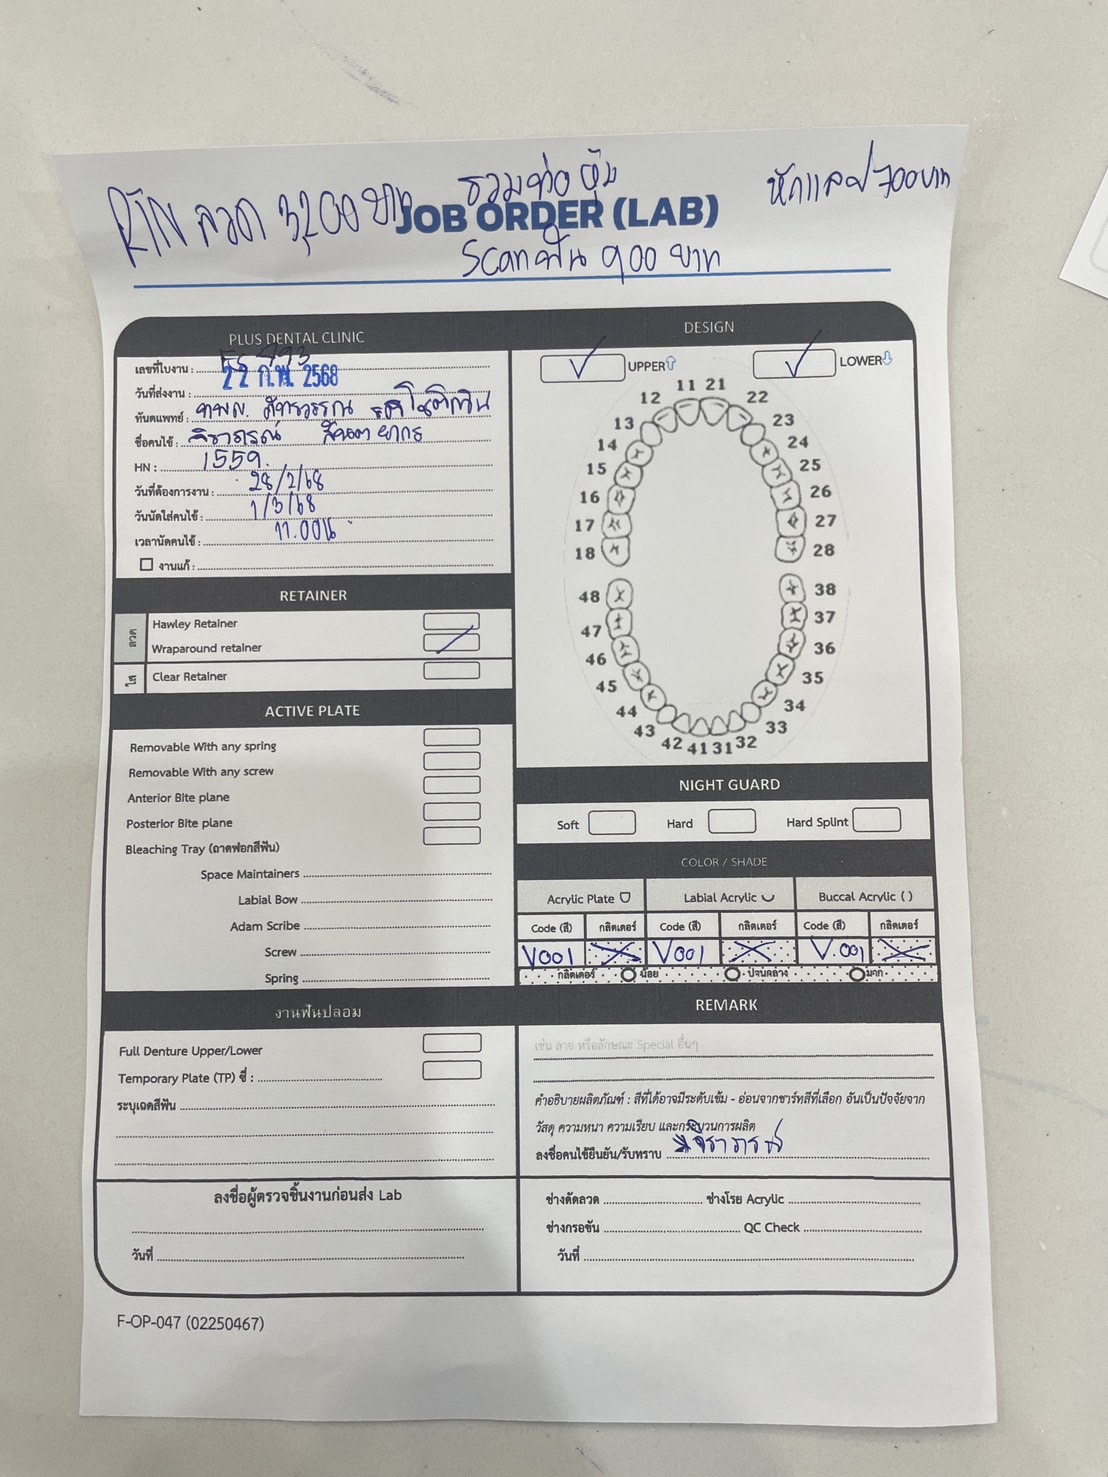 RTN ลวด 3,200 บาท รวมท่อหุ้ม หักแลป 700 บาท
JOB ORDER (LAB)
Scan ฟัน 900 บาท
PLUS DENTAL CLINIC
เลขที่ใบงาน :
วันที่ส่งงาน : 22 ก.พ. 2568
ทันตแพทย์ : ทพญ.
ชื่อคนไข้ :
HN : 1559
วันที่ต้องการงาน : 28/2/68
วันนัดใส่คนไข้ : 1/3/68
เวลานัดคนไข้ : 11.00น
งานแก้ :
RETAINER
ลวด
Hawley Retainer
Wraparound retainer
ใส
Clear Retainer
ACTIVE PLATE
Removable With any spring
Removable With any screw
Anterior Bite plane
Posterior Bite plane
Bleaching Tray (ถาดฟอกสีฟัน)
Space Maintainers
Labial Bow
Adam Scribe
Screw
Spring
งานฟันปลอม
Full Denture Upper/Lower
Temporary Plate (TP) ซี่ :
ระบุเฉดสีฟัน
ลงชื่อผู้ตรวจชิ้นงานก่อนส่ง Lab
วันที่
DESIGN
UPPER LOWER
11 21
12 22
13 23
14 24
15 25
16 26
17 27
18 28
48 38
47 37
46 36
45 35
44 34
43 33
42 41 31 32
NIGHT GUARD
Soft Hard Hard Splint
COLOR / SHADE
Acrylic Plate Labial Acrylic Buccal Acrylic ( )
Code (สี) กลิตเตอร์ Code (สี) กลิตเตอร์ Code (สี) กลิตเตอร์
V001 V001 V.001
กลิตเตอร์ น้อย ปานกลาง มาก
REMARK
เช่น ลาย หรือลักษณะ Special อื่นๆ
คำอธิบายผลิตภัณฑ์ : สีที่ได้อาจมีระดับเข้ม - อ่อนจากชาร์ทสีที่เลือก อันเป็นปัจจัยจาก
วัสดุ ความหนา ความเรียบ และกระบวนการผลิต
ลงชื่อคนไข้ยืนยัน/รับทราบ
ช่างดัดลวด ช่างโรย Acrylic
ช่างกรอขัน QC Check
วันที่
F-OP-047 (02250467)